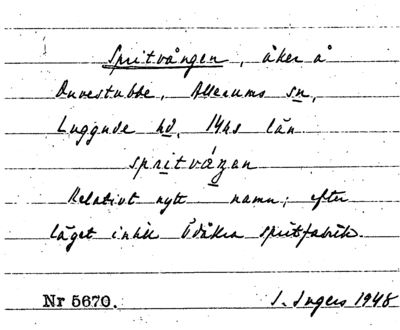 Spritvången, åker å
Duvestubbe, Allerums sn,
Luggude hd, Mhs län
spritváŋən
Relativt nytt namn; efter
läget intill Ödåkra spritfabrik.
Nr 5670. I. Ingers 1948